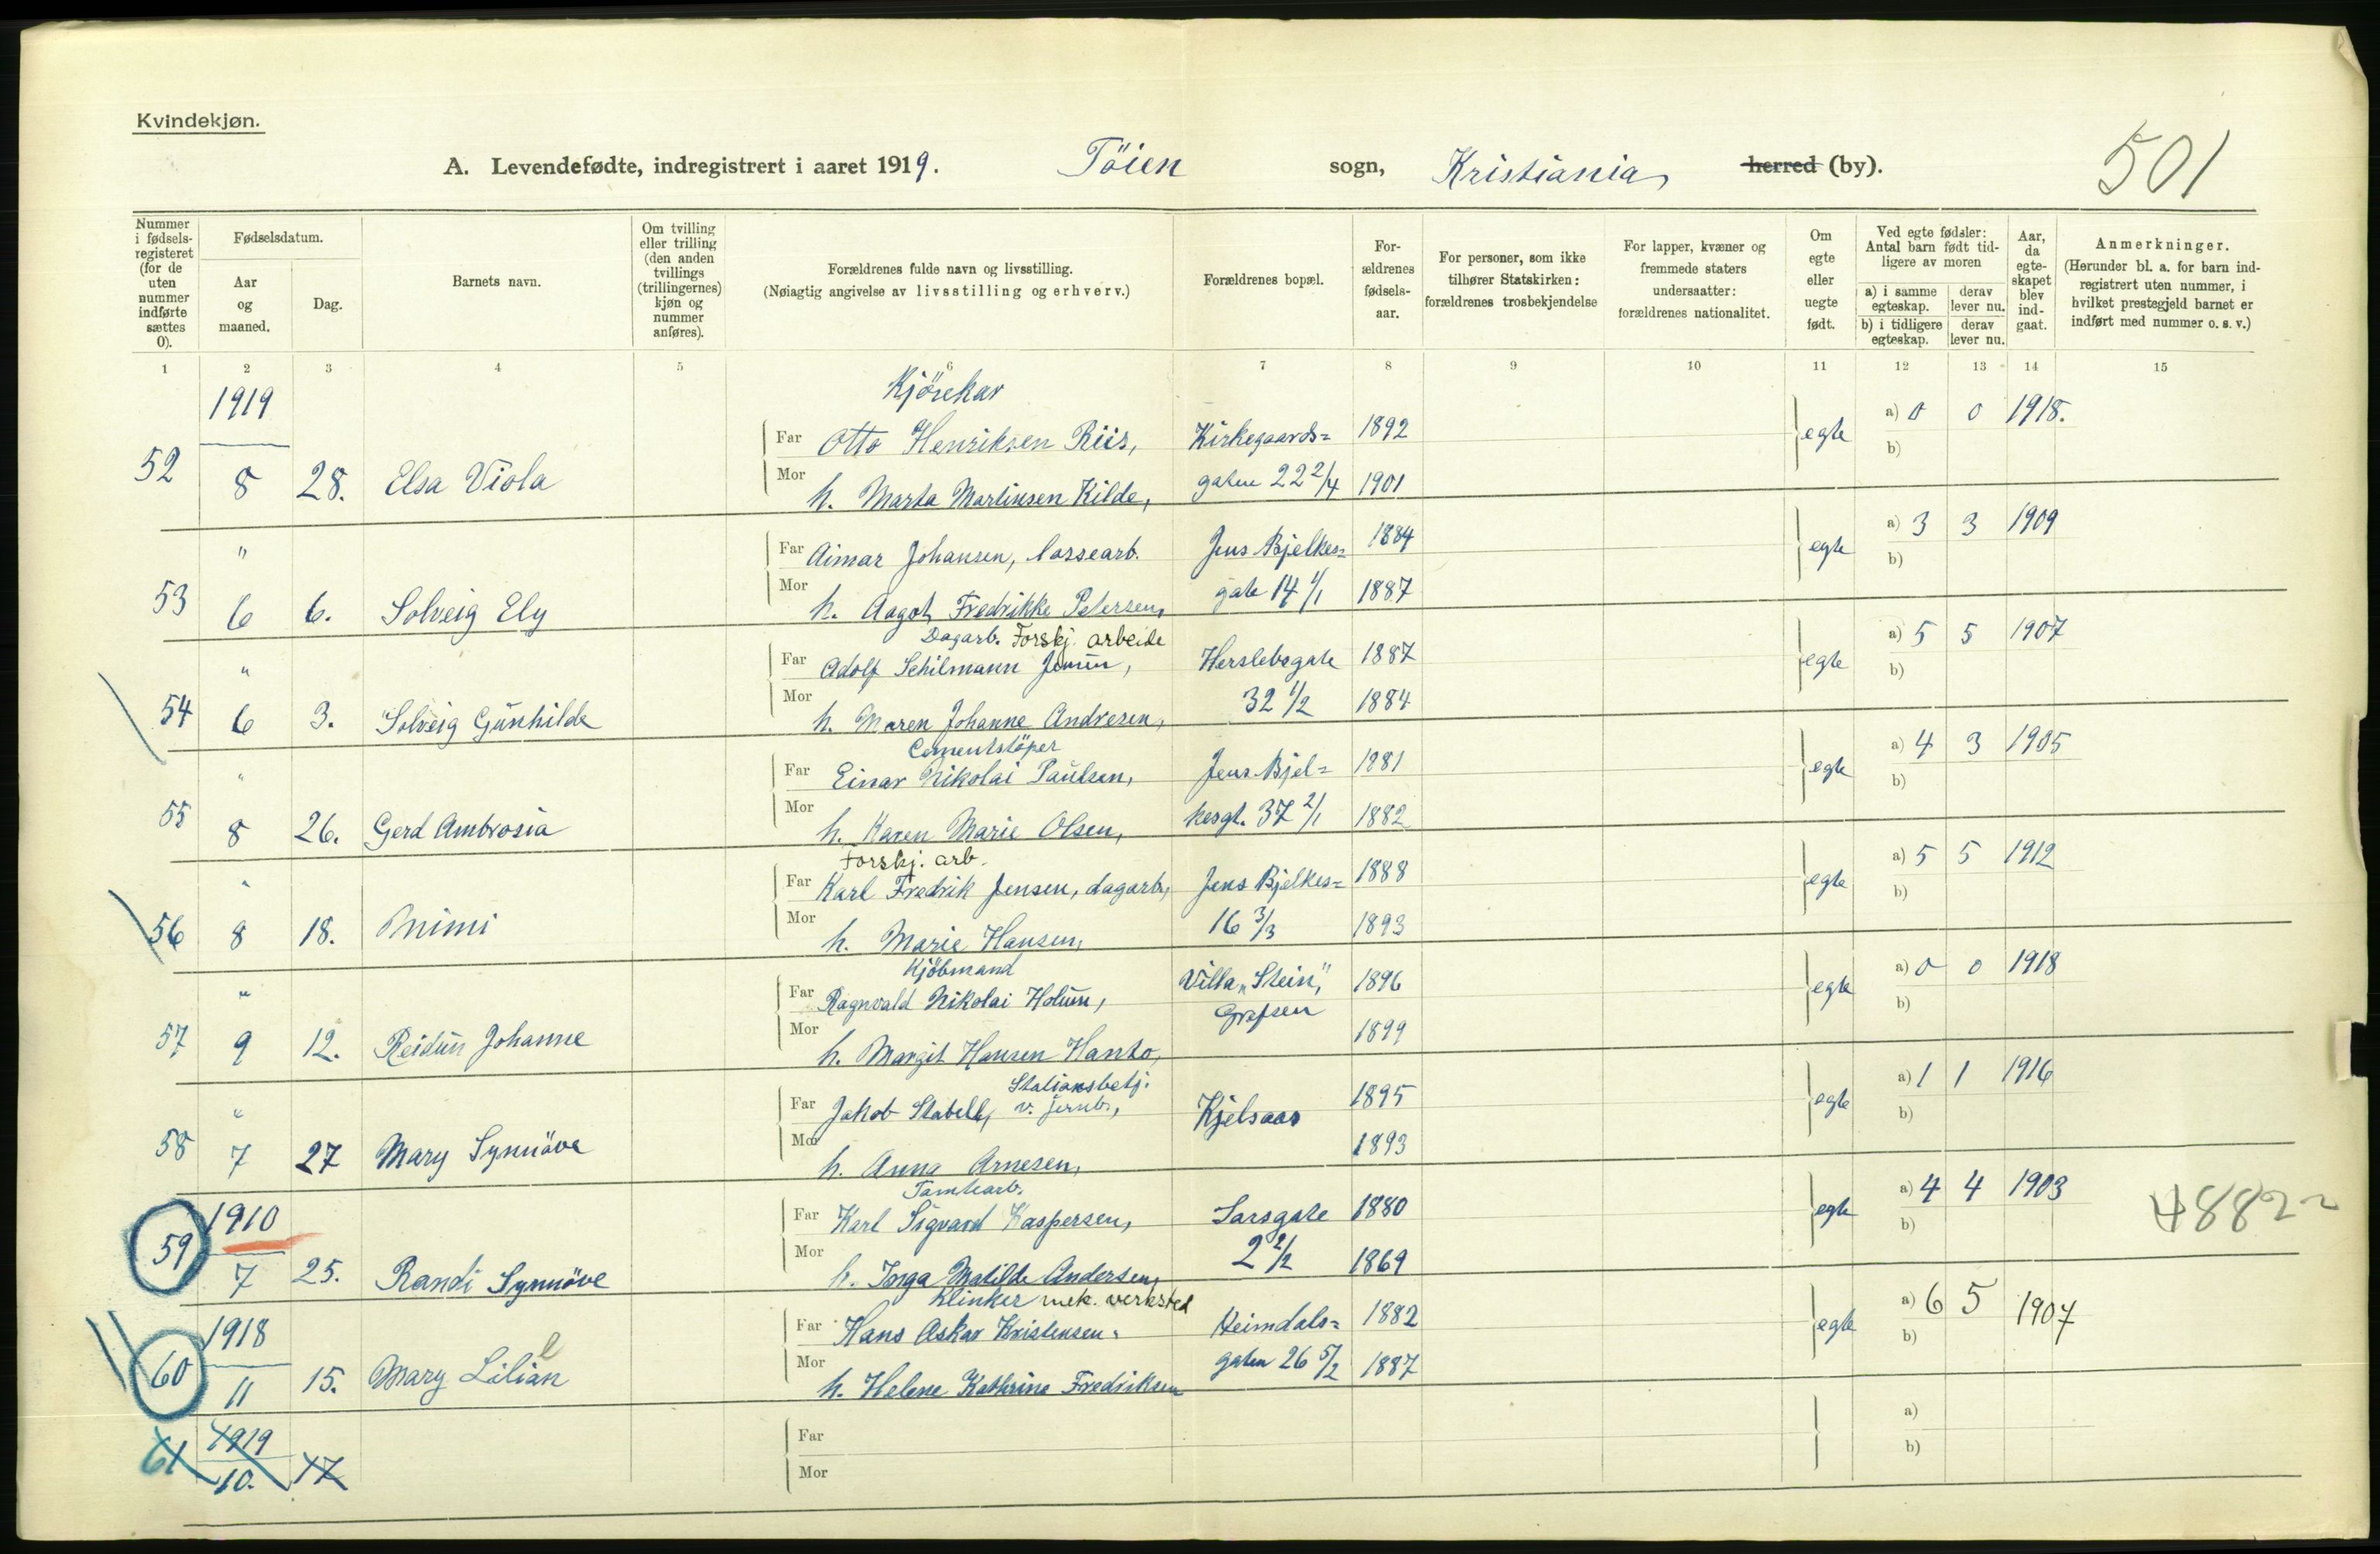 Kvindekjøn.
501
A. Levendefødte, indregistrert i aaret 1919. Töien sogn, Kristiania herred (by).
Nummer i fødsels-registeret (for de uten nummer indførte sættes 0).
Fødselsdatum.
Aar og maaned.
Dag.
Barnets navn.
Om tvilling eller trilling (den anden tvillings (trillingernes) kjøn og nummer anføres).
Forældrenes fulde navn og livsstilling.
(Nøiagtig angivelse av livsstilling og erhverv.)
Forældrenes bopæl.
For-ældrenes fødsels-aar.
For personer, som ikke tilhører Statskirken: forældrenes trosbekjendelse
For lapper, kvæner og fremmede staters undersaatter: forældrenes nationalitet.
Om egte eller uegte født.
Ved egte fødsler: Antal barn født tid-ligere av moren
a) i samme egteskap.
derav lever nu.
b) i tidligere egteskap.
derav lever nu.
Aar, da egte-skapet blev ind-gaat.
Anmerkninger.
(Herunder bl. a. for barn ind-registrert uten nummer, i hvilket prestegjeld barnet er indført med nummer o. s. v.)
1 2 3 4 5 6 7 8 9 10 11 12 13 14 15
1919 Kjörekar
Far Otto Henriksen Riis, Kirkegaards= 1892 egte a) 0 0 1918.
52 8 28. Elsa Viola Mor h. Marta Martinsen Kilde, gaten 22 2/4 1901 b)
" Far Aimar Johansen, lossearb. Jens Bjelkes= 1884 egte a) 3 3 1909
53 6 6. Solveig Ely Mor h. Aagot Fredrikke Petersen, gate 14 1/1 1887 b)
Dagarb. Forskj. arbeide
" Far Adolf Schilmann Jensen, Herslebsgate 1887 egte a) 5 5 1907
54 6 3. Solveig Gunhilde Mor h. Maren Johanne Andresen, 32 1/2 1884 b)
Cementstöper
" Far Einar Nikolai Paulsen, Jens Bjel= 1881 egte a) 4 3 1905
55 8 26. Gerd Ambrosia Mor h. Karen Marie Olsen, kesgt. 37 2/1 1882 b)
Forskj. arb.
" Far Karl Fredrik Jensen, dagarb, Jens Bjelkes= 1888 egte a) 5 5 1912
56 8 18. Mimi Mor h. Marie Hansen, 16 3/3 1893 b)
Kjöbmand
" Far Ragnvald Nikolai Holum, Villa „Stein", 1896 egte a) 0 0 1918
57 9 12. Reidun Johanne Mor h. Margit Hansen Hanto, Grefsen 1899 b)
Stationsbetj.
" Far Jakob Stabell, v. jernb., Kjelsaas 1895 egte a) 1 1 1916
58 7 27 Mary Synnöve Mor h. Anna Arnesen, 1893 b)
Tomtearb.
1910 Far Karl Sigvard Kaspersen, Larsgate 1880 egte a) 4 4 1903 4882
59 7 25. Randi Synnöve Mor h. Inga Matilde Andersen, 2 2/2 1869 b)
Klinker mek. verksted
1918 Far Hans Askar Kristensen, Heimdals= 1882 egte a) 6 5 1907
60 11 15. Mary Lilian Mor h. Helene Kathrine Fredriksen gaten 26 5/2 1887 b)
61 1919 Far a)
10. 17 Mor b)